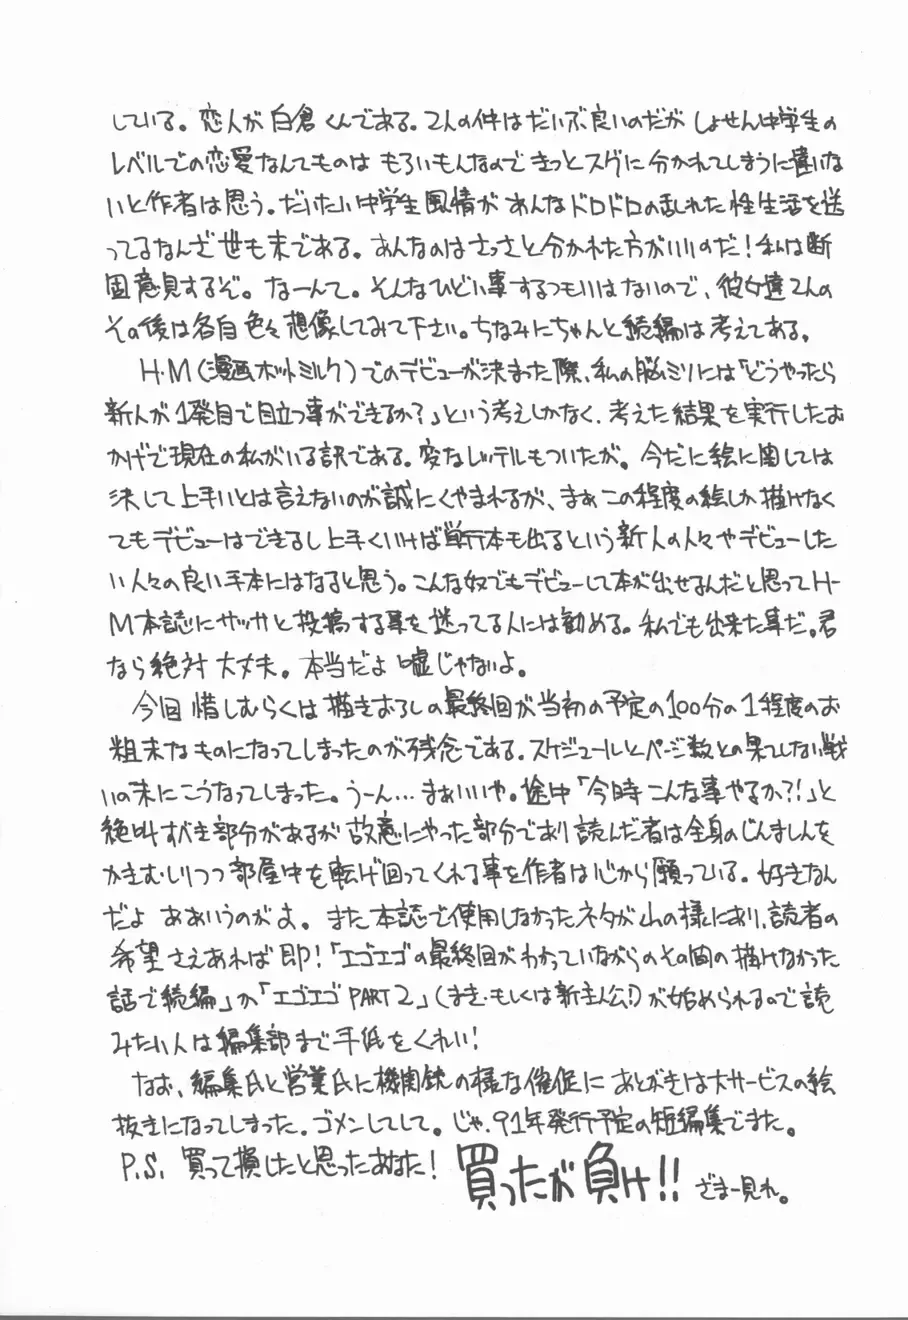 している。恋人が白倉くんである。2人の仲はだいぶ良いのだがしょせん中学生の
レベルでの恋愛なんてものはもろいもんなのできっとスグに分かれてしまうに違いな
いと作者は思う。だいたい中学生風情があんなドロドロの乱れた性生活を送
ってるなんざ世も末である。あんなのはさっさと分かれた方がいいのだ!私は断
固意見するぞ。なーんて。そんなひどい事するつもりはないので、彼女達2人の
その後は各自色々想像してみて下さい。ちなみにちゃんと続編は考えてある。
H・M(漫画ホットミルク)でのデビューが決まった際、私の脳ミソには「どうやったら
新人が1発目で目立つ事ができるか?」という考えしかなく、考えた結果を実行したお
かげで現在の私がいる訳である。変なレッテルもついたが。今だに絵に関しては
決して上手いとは言えないのが誠にくやまれるが、まぁこの程度の絵しか描けなく
てもデビューはできるし上手くいけば単行本も出るという新人の人々やデビューした
い人々の良い手本にはなると思う。こんな奴でもデビューして本が出せるんだと思ってH・
M本誌にサッサと投稿する事を迷ってる人には勧める。私でも出来た事だ。君
なら絶対大丈夫。本当だよ嘘じゃないよ。
今回惜しむらくは描きおろしの最終回が当初の予定の100分の1程度のお
粗末なものになってしまったのが残念である。スケジュールとページ数との果てしない戦
いの末にこうなってしまった。うーん…まぁいいや。途中「今時こんな事やるか?!」と
絶叫すべき部分があるが故意にやった部分であり読んだ者は全身のじんましんを
かきむしりつつ部屋中を転げ回ってくれる事を作者は心から願っている。好きなん
だよああいうのがよ。また本誌で使用しなかったネタが山の様にあり、読者の
希望さえあれば即!「エゴエゴの最終回がわかっていながらのその間の描けなかった
話で続編」か「エゴエゴPART2」(まき・もしくは新主人公!)が始められるので読
みたい人は編集部まで手紙をくれい!
なお、編集氏と営業氏に機関銃の様な催促にあとがきは大サービスの絵
抜きになってしまった。ゴメンしてして。じゃ、91年発行予定の短編集でまた。
P.S. 買って損したと思ったあなた! 買ったが負け!! ざまー見れ。